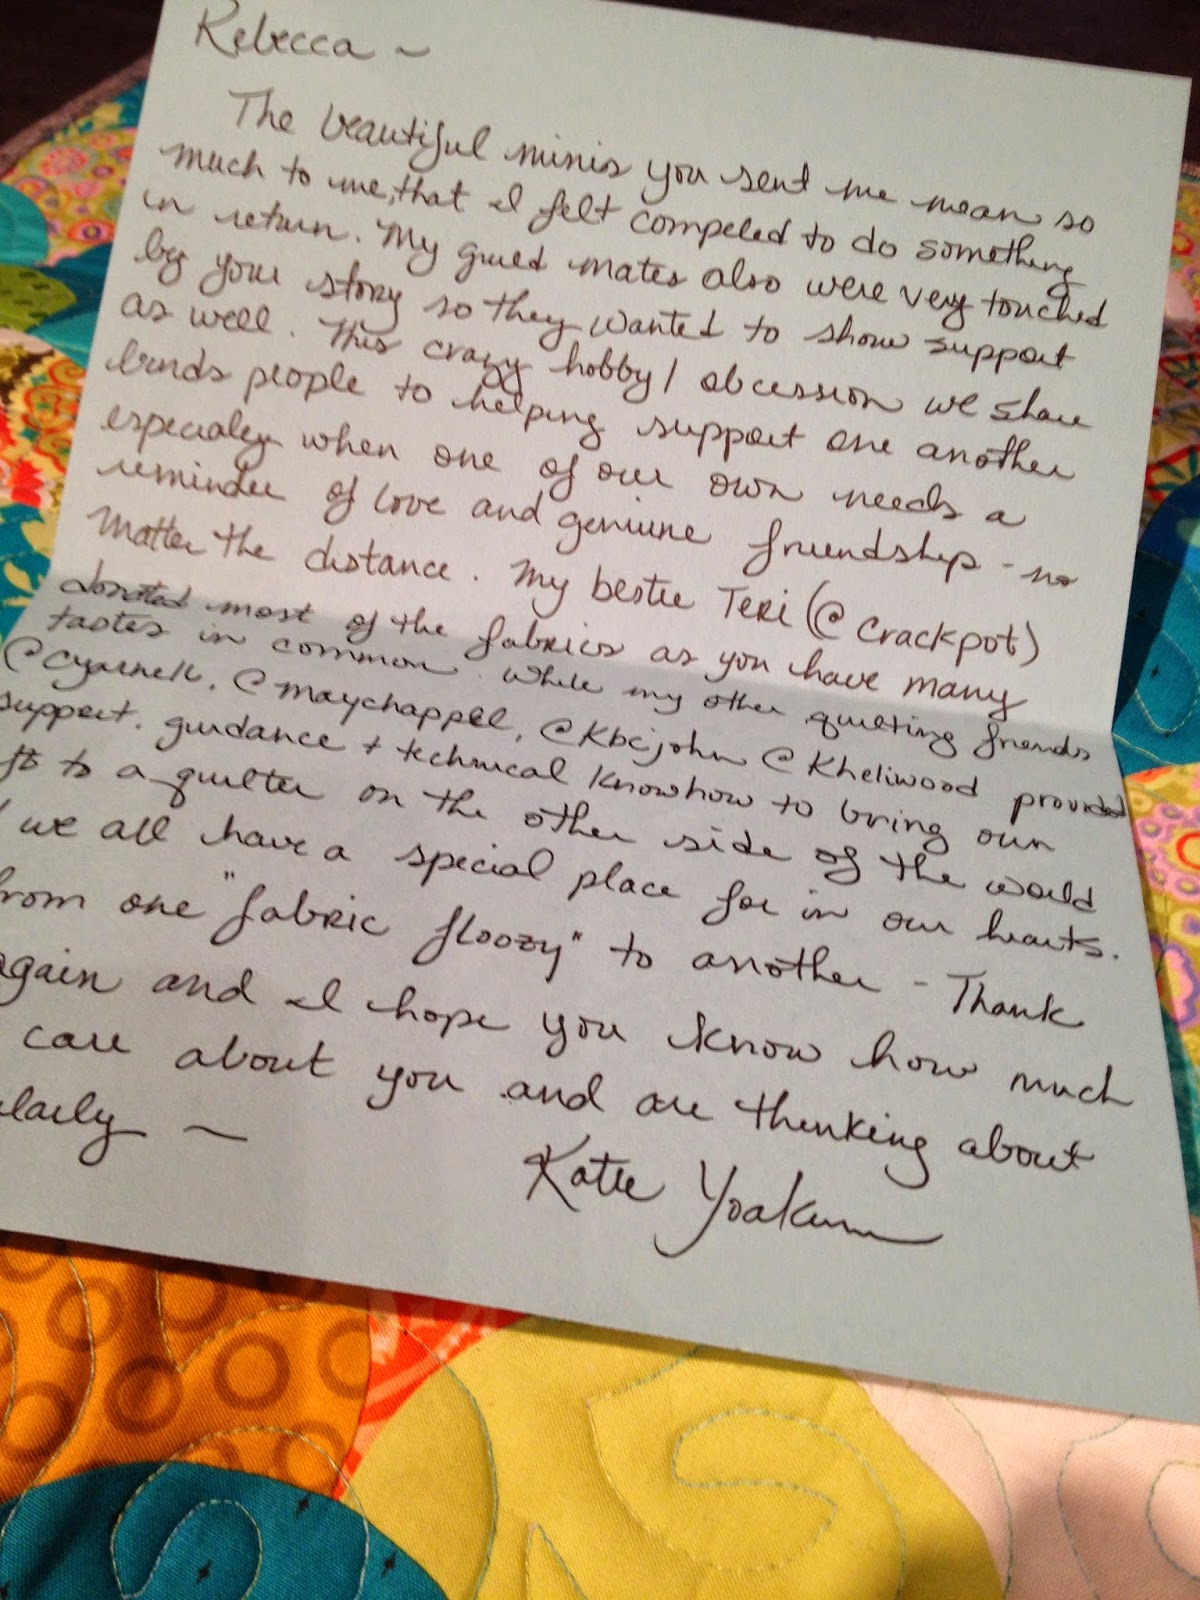 Rebecca ~
The beautiful minis you sent me mean so
much to me, that I felt compeled to do something
in return. My guild mates also were very touched
by your story so they wanted to show support
as well. This crazy hobby / obcession we share
binds people to helping support one another
especialey when one of our own needs a
reminder of love and geniune friendship - no
matter the distance. My bestie Teri (@ crackpot)
donated most of the fabrics as you have many
tastes in common. While my other quilting friends
@maychappell, @Kbcjohn @Kheliwood provided
support. guidance + technical knowhow to bring our
to a quilter on the other side of the world
we all have a special place for in our hearts.
from one "fabric floozy" to another - Thank
again and I hope you know how much
care about you and are thinking about
~
Katie Yoakum